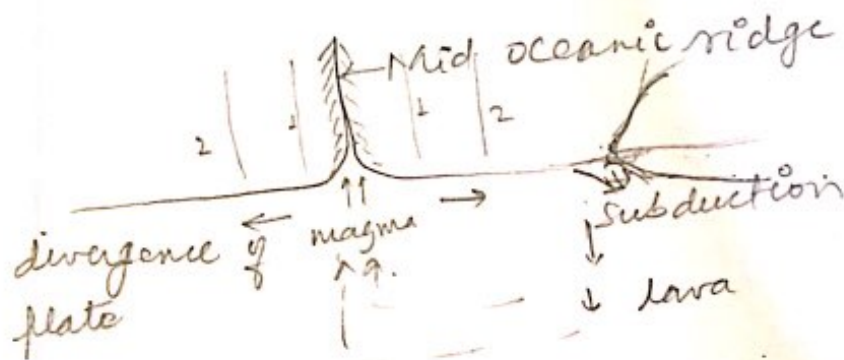 Mid oceanic ridge
2 1 1 2
subduction
divergence of magma
plate
lava